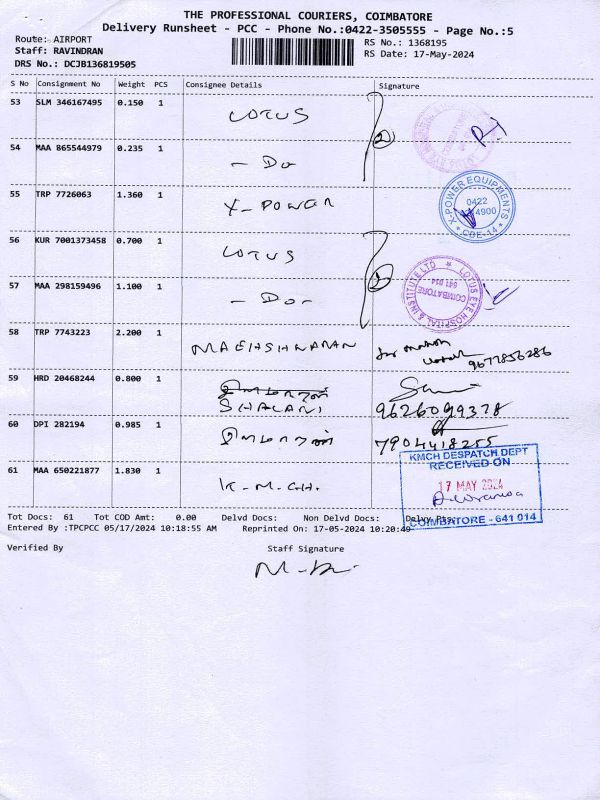 THE PROFESSIONAL COURIERS, COIMBATORE
Delivery Runsheet - PCC - Phone No.:0422-3505555 - Page No.:5
Route: AIRPORT
RS No.: 1368195
Staff: RAVINDRAN
RS Date: 17-May-2024
DRS No.: DCJB136819505
S No Consignment No Weight PCS Consignee Details Signature
53 SLM 346167495 0.150 1 LOTUS
54 MAA 865544979 0.235 1 - Do
55 TRP 7726063 1.360 1 X-POWER
X-POWER EQUIPMENTS
0422
4900
CBE-14
56 KUR 7001373458 0.700 1 LOTUS
57 MAA 298159496 1.100 1 - Do -
LOTUS EYE HOSPITAL & INSTITUTE LTD
COIMBATORE
641 014
58 TRP 7743223 2.200 1 MAEHSHWARAN
9677856286
59 HRD 20468244 0.800 1 SHALANI
9626099378
60 DPI 282194 0.985 1
7904418255
61 MAA 650221877 1.830 1 K.M.CH.
KMCH DESPATCH DEPT
RECEIVED ON
17 MAY 2024
COIMBATORE - 641 014
Tot Docs: 61 Tot COD Amt: 0.00 Delvd Docs: Non Delvd Docs:
Entered By :TPCPCC 05/17/2024 10:18:55 AM Reprinted On: 17-05-2024 10:20:49
Verified By Staff Signature